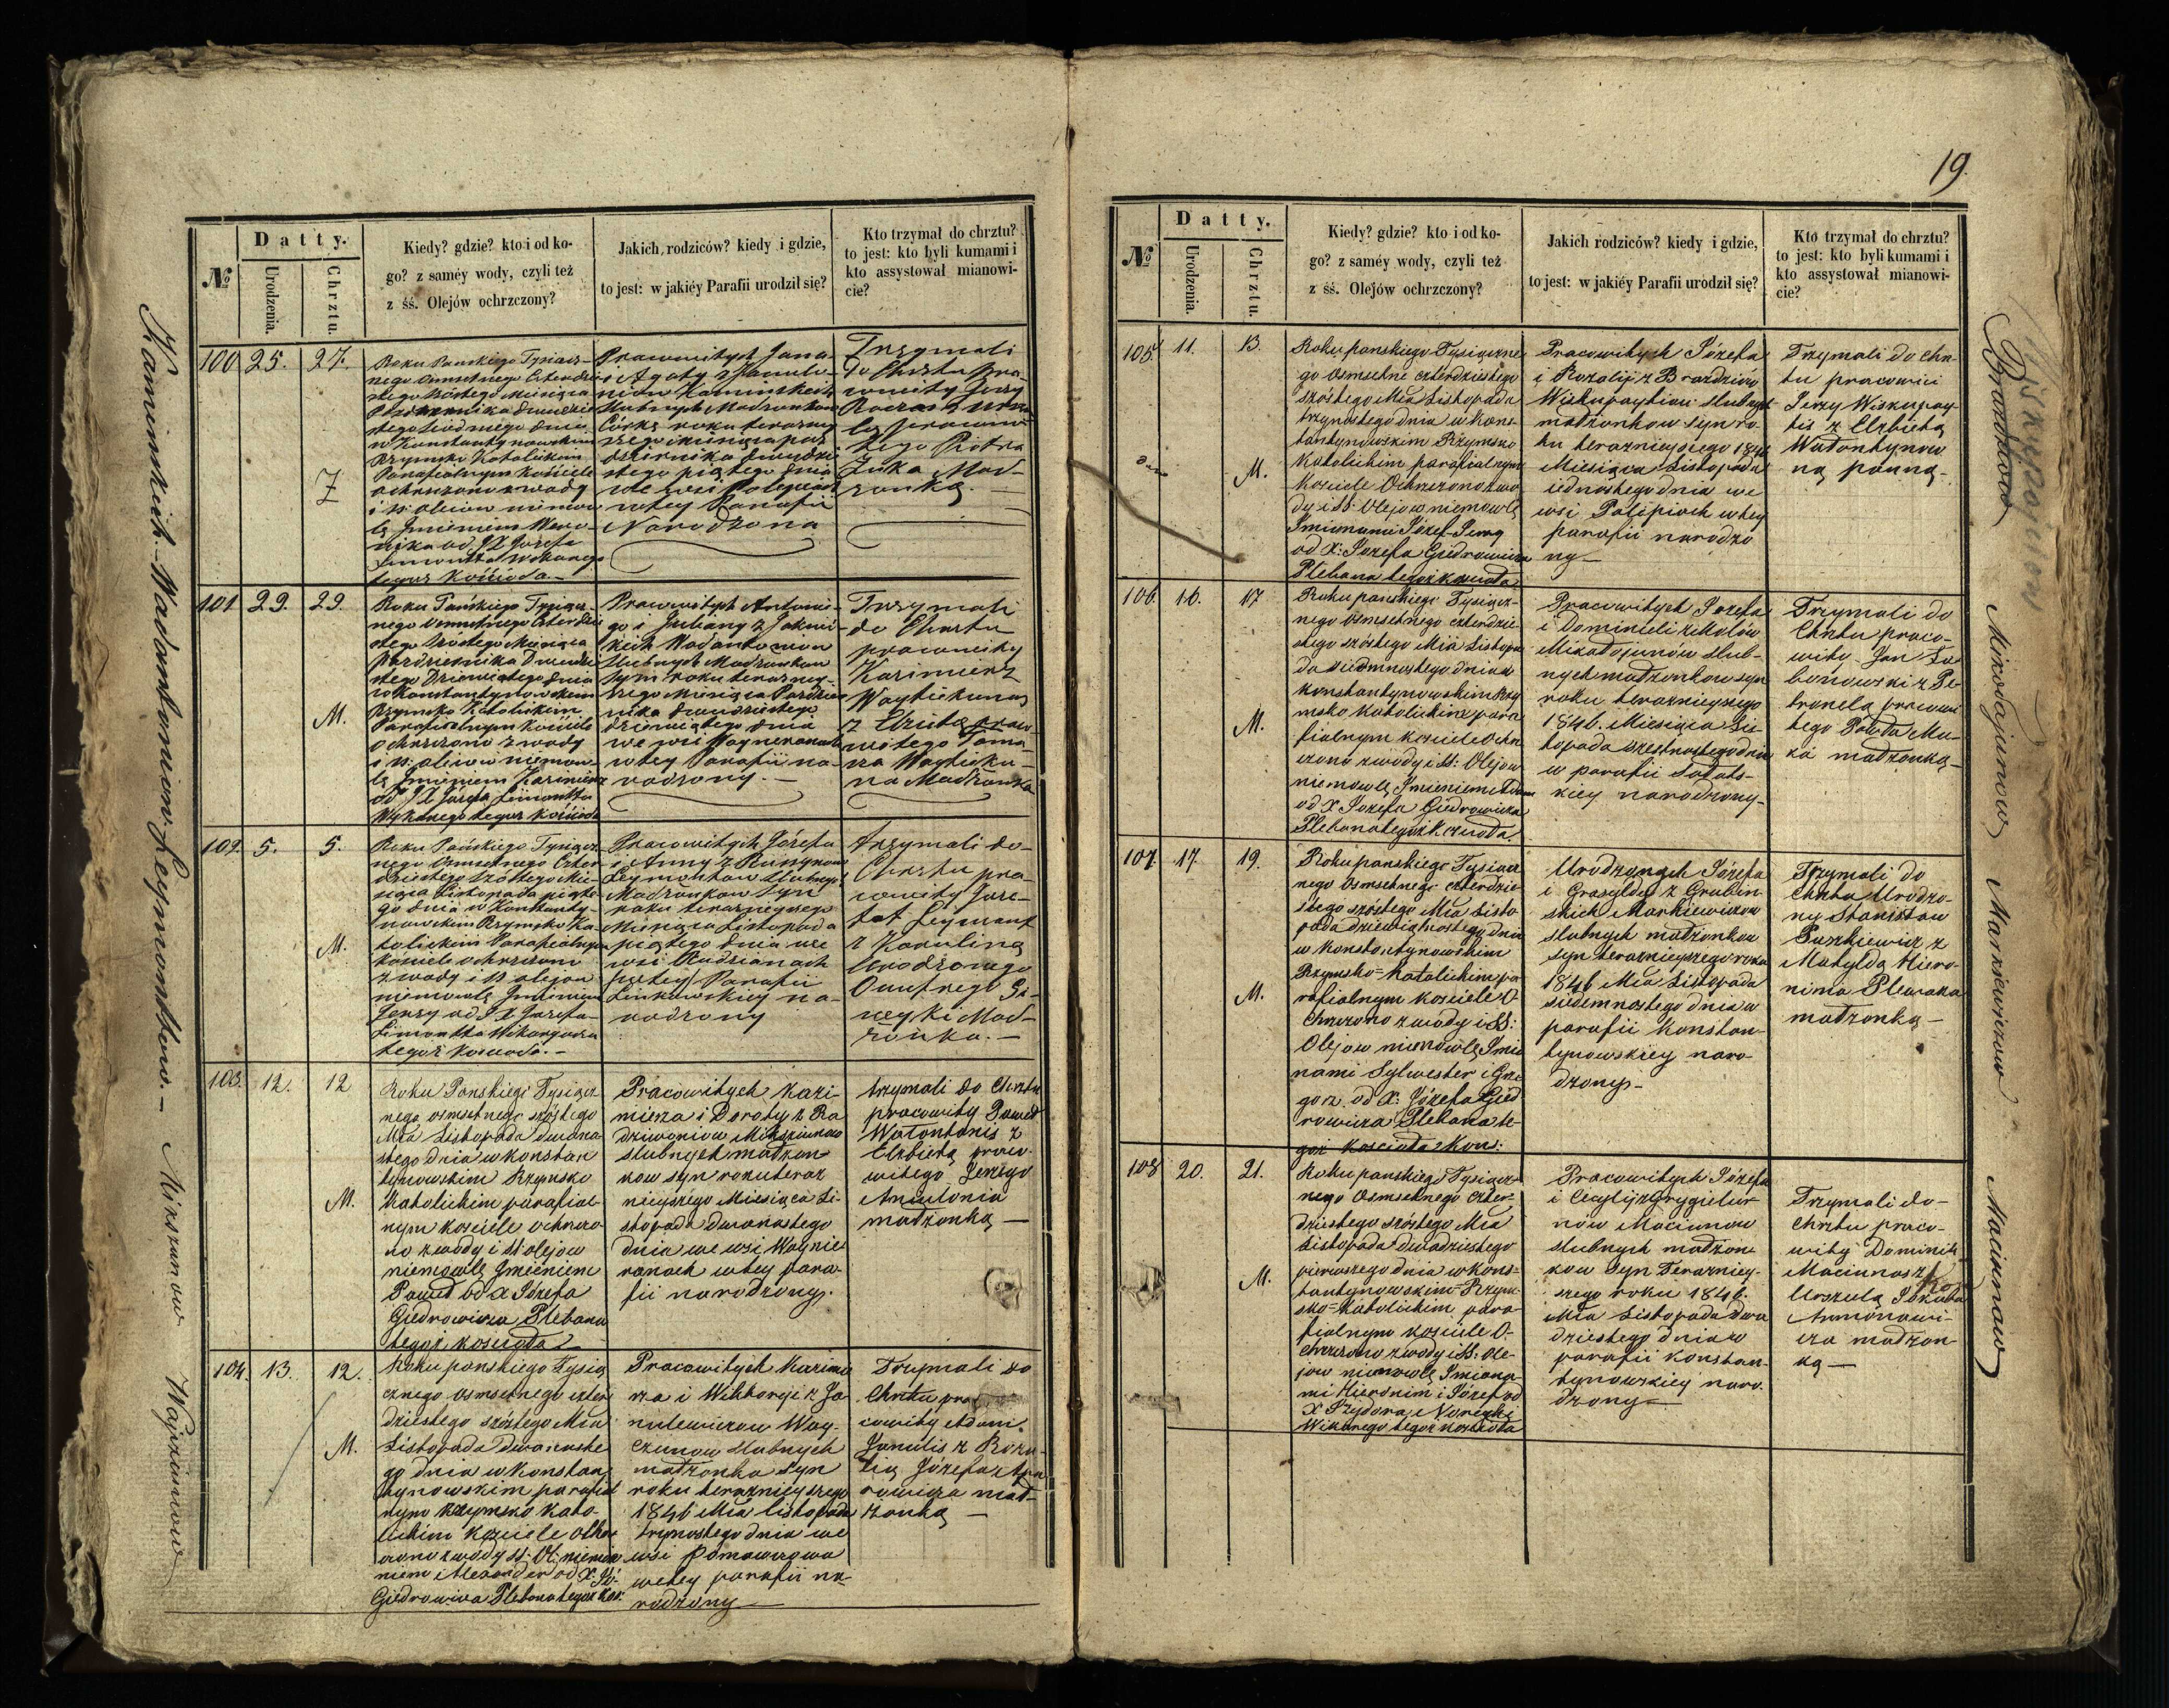 19.
№
Datty.
Urodzenia.
Chrztu.
Kiedy? gdzie? kto i od ko-
go? z saméy wody, czyli też
z śś. Olejów ochrzczony?
Jakich rodziców? kiedy i gdzie,
to jest: w jakiéy Parafii urodził się?
Kto trzymał do chrztu?
to jest: kto byli kumami i
kto assystował mianowi-
cie?
100
25.
27.
Roku Pańskiego Tysiącz-
nego Osmsetnego Czterdzie-
stego Szóstego Miesiąca
Października dwudzie-
stego siódmego dnia
w Konstantynowskim
Rzymsko Katolickim
Parafialnym Kościele
ochrzczono z wody
i ss. oleiow niemow-
lę Imieniem Wero-
nika od JX Jozefa
Limontta Wikarego
tegoż Kościoła.-
Pracowitych Jana
i Agaty z
Kamińskich
Slubnych Małżonkow
Córkę roku teraźniey-
szego miesiąca paź-
dziernika dwudzie-
stego piątego dnia
we wsi Polepiach
w tey Parafii
Narodzona
Trzymali
do Chrztu Pra-
cowity Jerzy
pracowi-
tego Piotra
Żuka Mał-
żonką.-
101
29.
29.
M.
Roku Pańskiego Tysiącz-
nego Osmsetnego Czterdzie-
stego Szóstego Miesiąca
Października Dwudzie-
stego Dziewiątego dnia
w Konstantynowskim
Rzymsko Katolickim
Parafialnym Kościele
ochrzczono z wody
i ss. oleiow niemow-
lę Imieniem Kazimierz
od JX Józefa Limontta
Wikarego tegoż Kościoła
Pracowitych Antonie-
go i Juliany z
Slubnych Małżonkow
Syn roku teraźniey-
szego Miesiąca Paździer-
nika dwudziestego
dziewiątego dnia
we wsi Woyneranach
w tey Parafii na-
rodzony.-
Trzymali
do Chrztu
pracowity
Kazimierz
Woytiekunas
z Elżbietą praco-
witego Toma-
sza Woytieku-
na Małżonką
102.
5.
5.
M.
Roku Pańskiego Tysiącz-
nego Osmsetnego Czter-
dziestego Szóstego Mie-
siąca Listopada piąte-
go dnia w Konstanty-
nowskim Rzymsko Ka-
tolickim Parafialnym
Kościele ochrzczono
z wody i ss olejow
niemowlę Imieniem
Jerzy od JX Jozefa
Limontta Wikaryusza
tegoż Kościoła.-
Pracowitych Józefa
i Anny z
Leymontow Slubnych
Małżonkow Syn
roku teraźnieyszego
Miesiąca Listopada
piątego dnia we
wsi Radzianach
w tey Parafii
Linkowskiey na-
rodzony
Trzymali do
Chrztu pra-
cowity Joze-
fat Leymont
z Karoliną
Urodzonego
Onufrego Gi-
neyki Mał-
żonką.-
103.
12.
12
M.
Roku Panskiego Tysiącz-
nego osmsetnego szóstego
Mca Listopada dwuna-
stego dnia w Konstan-
tynowskim Rzymsko
Katolickim parafial-
nym kosciele ochrzczo-
no z wody i SS olejow
niemowlę Imieniem
Paweł od X Józefa
Giedrowicza Plebana
tegoż koscioła
Pracowitych Kazi-
mierza i Doroty z Ra
dziwoniow Mikszunow
slubnych małżon-
kow syn roku teraz
nieyszego Miesiąca Li-
stopada dwunastego
dnia we wsi Woynie
ranach w tey para-
fii narodzony.
trzymali do Chrztu
pracowity Paweł
Wałontonis z
Elżbietą praco-
witego Jerzego
Antulonia
małżonką —
104.
13.
12.
M.
Roku panskiego Tysią
cznego osmsetnego czter
dziestego szóstego Mca
Listopada dwunaste
go dnia w Konstan
tynowskim parafial
nym Rzymsko kato-
lickim kosciele ochrz-
czono z wody SS: Ol: niemow
niem Alexander od X: Jó-
Giedrowicza Plebana tegoż kos:
Pracowitych Kazimie
rza i Wiktoryi z Ja
nulewiczow Way-
czunow slubnych
małżonkow Syn
roku teraznieyszego
1846 Mca listopada
trzynastego dnia we
wsi
w tey parafii na-
rodzony
Trzymali do
Chrztu pra
cowity Adam
Janulis z Roza-
lią Józefa
małżonką —
105.
11.
13.
M.
Roku panskiego Tysiączne
go osmsetne czterdziestego
szóstego Mca Listopada
trzynastego dnia w Kons-
tantynowskim Rzymsko
Katolickim parafialnym
Kosciele Ochrzczono z wo
dy i SS: Olejow niemowlę
Imionami Józef Jerzy
od X: Jozefa Giedrowicza
Plebana tegoż kosciola
Pracowitych Józefa
i Rozalij z Brazdziow
Wiskupaytiow slubnych
małżonkow syn ro-
ku teraznieyszego 1846
Miesiąca Listopada
iednastego dnia we
wsi Polipiach w tey
parafii narodzo
ny —
Trzymali do chrz-
tu pracowici
Jerzy Wiskupay-
tis z Elzbietą
Wałontynow
ną panną —
106.
16.
17
M.
Roku panskiego Tysiącz-
nego osmsetnego czterdzie-
stego szóstego Mca Listopa
da siedmnastego dnia w
Konstantynowskim Rzy
msko katolickim para
fialnym kosciele Ochrz-
czono z wody i SS: Olejow
niemowlę Imieniem Adam
od X Jozefa Giedrowicza
Plebana tegoż Kosciola
Pracowitych Jozefa
i Dominieli z Matow
Mikałojunow slub-
nych małżonkow syn
roku teraznieyszego
1846. Miesiąca Li-
stopada szesnastego dnia
w parafii Sałats-
kiey narodzony —
Trzymali do
Chrztu praco-
wity Jan
z Pe
tronelą pracowi
tego Pawła
małżonką —
107.
17.
19.
M.
Roku panskiego Tysiącz
nego osmsetnego czterdzie-
stego szóstego Mca Listo
pada dziewiętnastego dnia
w Konstantynowskim
Rzymsko-katolickim pa
rafialnym kosciele O-
chrzczono z wody i SS:
Olejow niemowlę Imio
nami Sylwester i Grze
gorz od X: Józefa Gied
rowicza Plebana te-
goż kosciola Kons:
Urodzonych Józefa
i Grasyldy z Grubin-
skich Markiewiczow
slubnych małżonkow
syn teraznieyszego roku
1846 Mca Listopada
siedemnastego dnia w
parafii Konstan-
tynowskiey naro-
dzony —
Trzymali do
Chrztu Urodzo-
ny Stanisław
Paszkiewicz z
Matyldą Hiero-
nima Plewaka
małżonką —
108
20.
21.
M.
Roku panskiego Tysiącz-
nego Osmsetnego czter-
dziestego szóstego Mca
Listopada dwódziestego
pierwszego dnia w Kons-
tantynowskim-Rzym-
sko-katolickim para-
fialnym kosciele O-
chrzczono z wody i SS: Ole-
jow niemowlę Imiona-
mi Hieronim i Józef od
X Izydora Noreyki
Wikarego tegoż kosciola
Pracowitych Józefa
i Cecylij z Grygielur
now Maciunow
slubnych małżon
kow syn Teraźniey-
szego roku 1846.
Mca Listopada dwu
dziestego dnia w
parafii Konstan-
tynowskiey naro-
dzony —
Trzymali do-
Chrztu praco-
wity Dominik
Maciunas z
Urszulą Jakuba
Antonowi-
cza małżon-
ką —
Kamienskich
Leymonttow.-
Mikszunow
Wayczunow
Wiskupaytiow
Mikołajunow
Markiewiczow
Maciunow